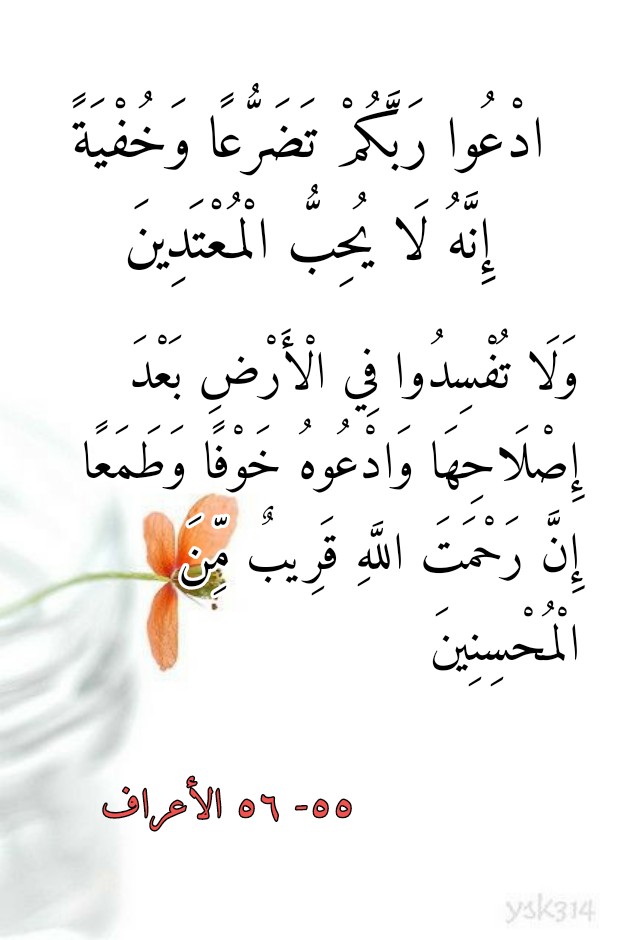 ادْعُوا رَبَّكُمْ تَضَرُّعًا وَخُفْيَةً
إِنَّهُ لَا يُحِبُّ الْمُعْتَدِينَ
وَلَا تُفْسِدُوا فِي الْأَرْضِ بَعْدَ
إِصْلَاحِهَا وَادْعُوهُ خَوْفًا وَطَمَعًا
إِنَّ رَحْمَتَ اللَّهِ قَرِيبٌ مِّنَ
الْمُحْسِنِينَ
٥٥- ٥٦ الأعراف
ysk314